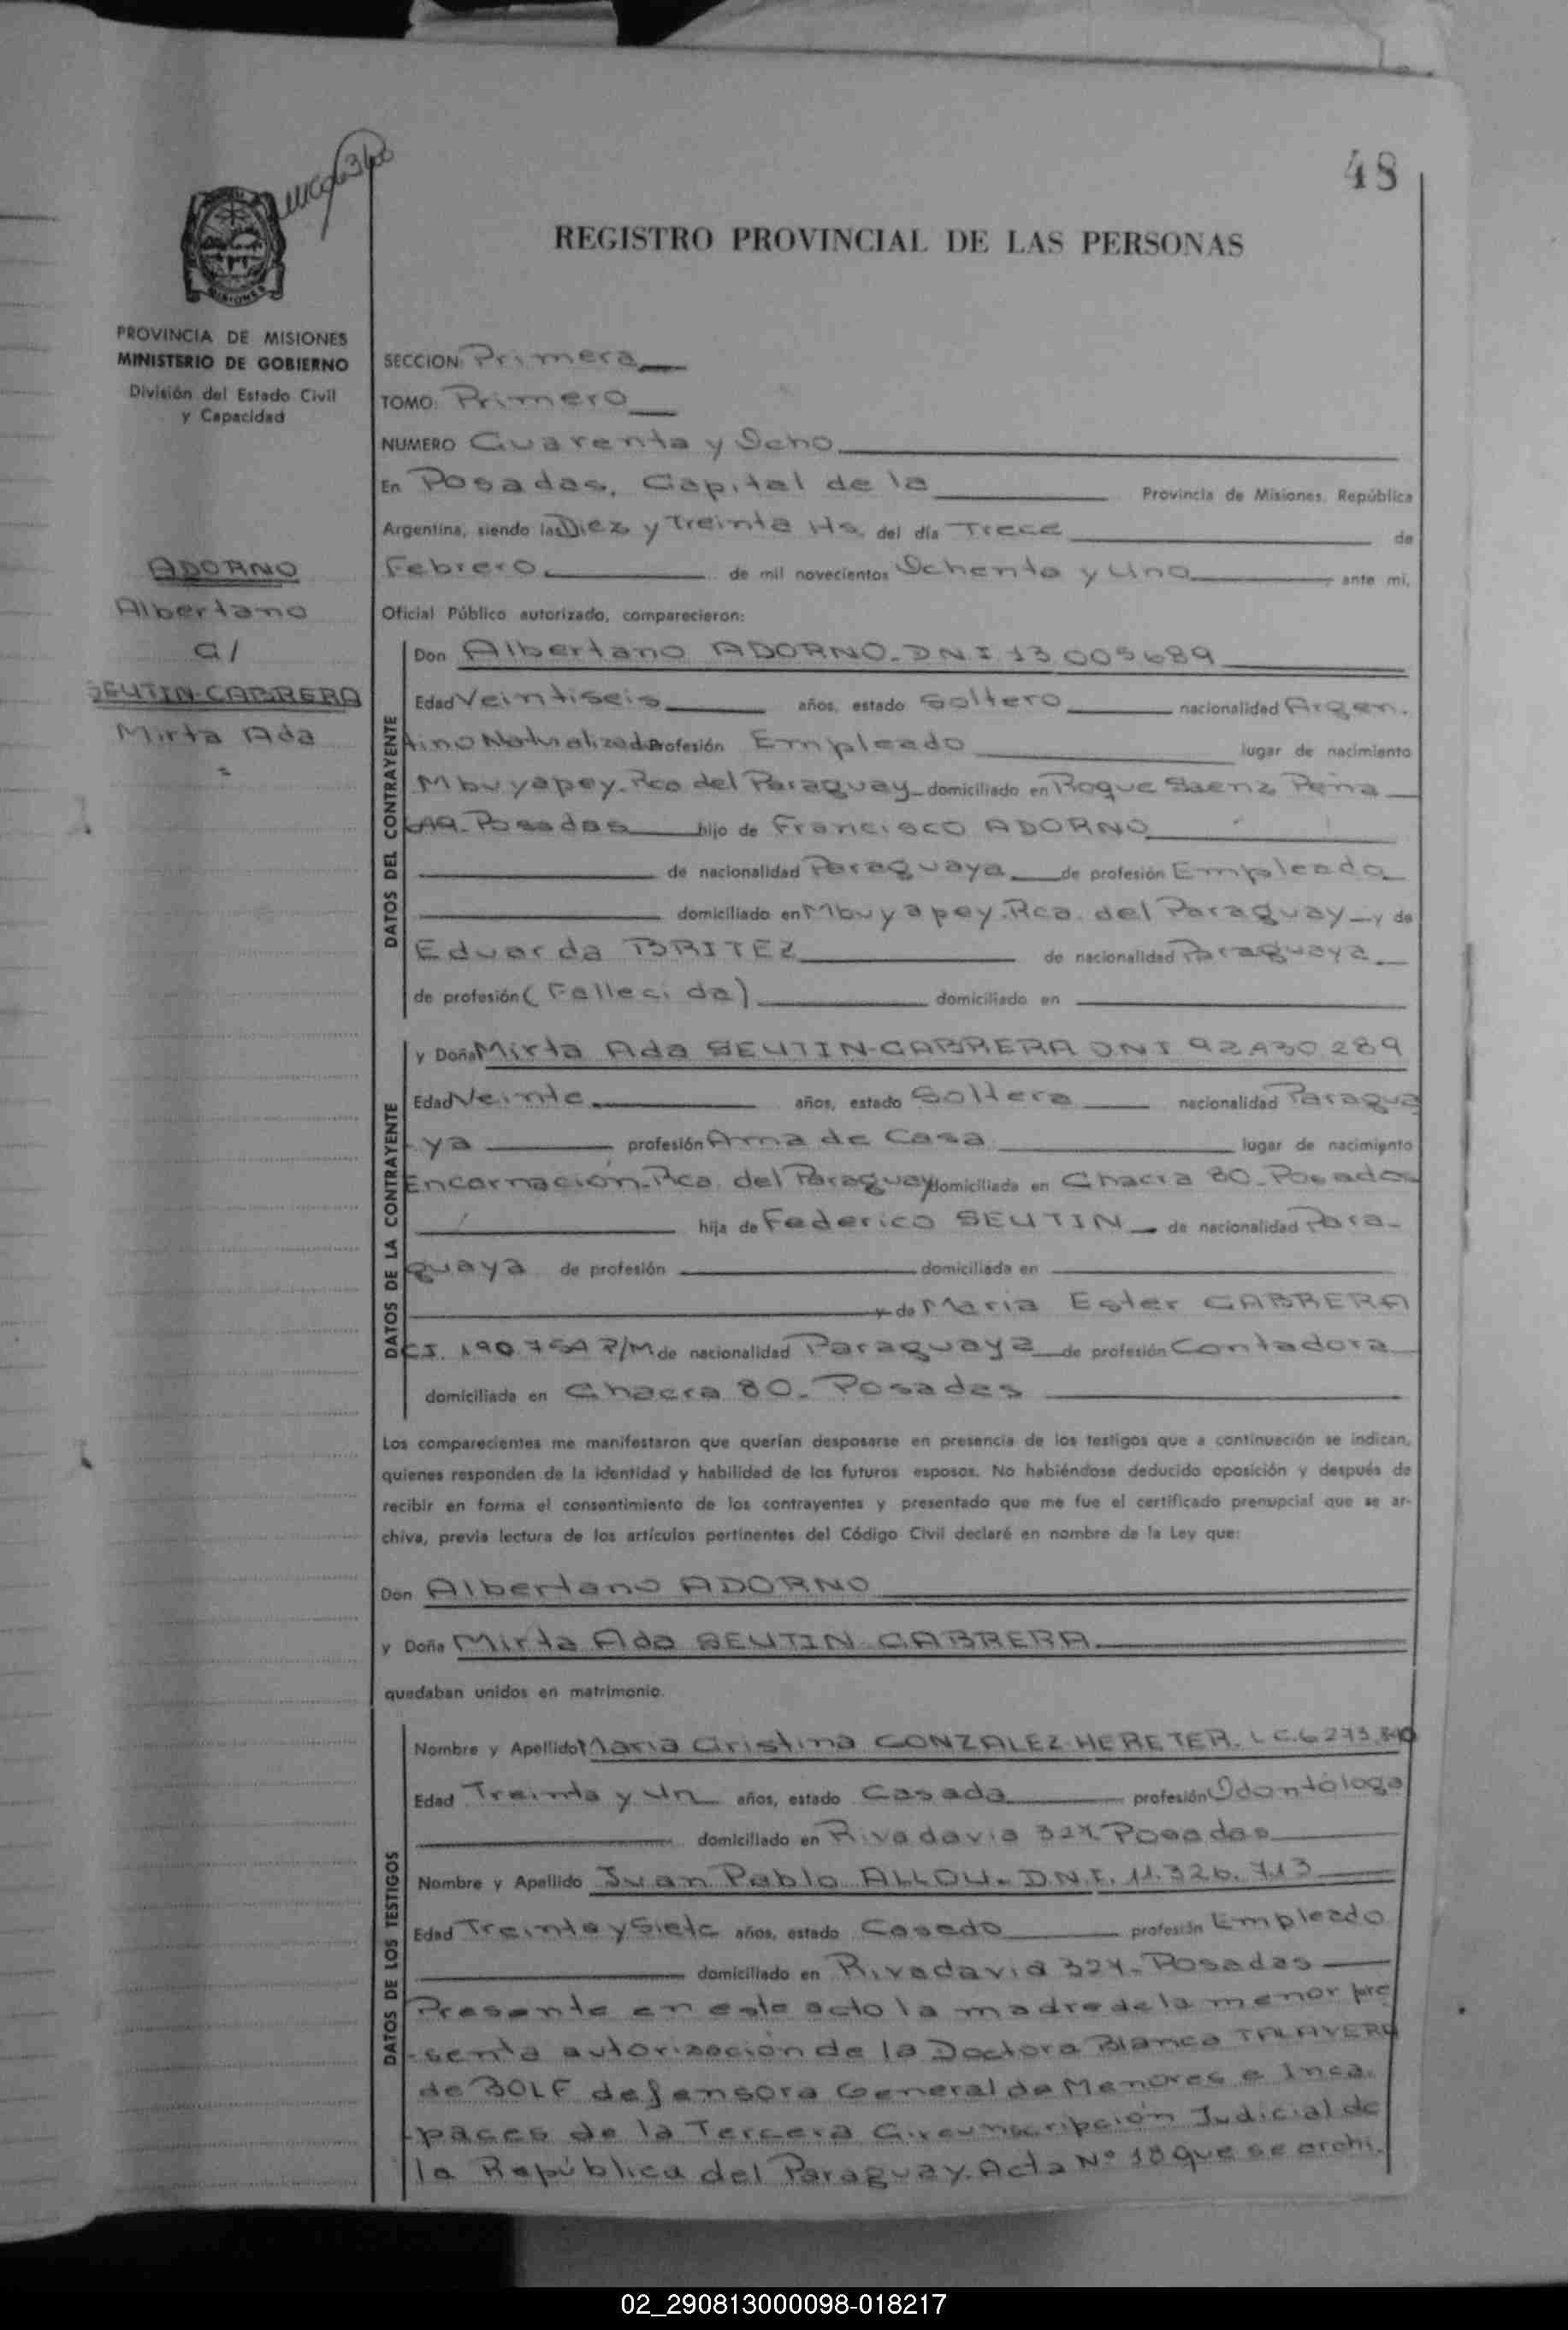 48
REGISTRO PROVINCIAL DE LAS PERSONAS
MISIONES
PROVINCIA DE MISIONES
MINISTERIO DE GOBIERNO
División del Estado Civil
y Capacidad
ADORNO
Albertano
C/
SEUTIN-CABRERA
Mirta Ada
SECCION: Primera
TOMO: Primero
NUMERO Cuarenta y Ocho
En Posadas, Capital de la Provincia de Misiones, República
Argentina, siendo las Diez y Treinta Hs. del día Trece de
Febrero de mil novecientos Ochenta y Uno ante mi,
Oficial Público autorizado, comparecieron:
DATOS DEL CONTRAYENTE
Don Albertano ADORNO. DNI 13 005689
Edad Veintiseis años, estado Soltero nacionalidad Argen-
tino Naturalizado profesión Empleado lugar de nacimiento
Mbuyapey. Rca del Paraguay domiciliado en Roque Saenz Peña
Posadas hijo de Francisco ADORNO
de nacionalidad Paraguaya de profesión Empleado
domiciliado en Mbuyapey. Rca. del Paraguay y de
Eduarda BRITEZ de nacionalidad Paraguaya
de profesión (Fallecida) domiciliado en
DATOS DE LA CONTRAYENTE
y Doña Mirta Ada SEUTIN-CABRERA DNI 92430289
Edad Veinte años, estado Soltera nacionalidad Paragua
ya profesión Ama de Casa lugar de nacimiento
Encarnación. Rca. del Paraguay domiciliada en Chacra 80. Posadas
hija de Federico SEUTIN de nacionalidad Para-
guaya de profesión domiciliada en
y de Maria Ester CABRERA
CI. 190.754 P/M. de nacionalidad Paraguaya de profesión Contadora
domiciliada en Chacra 80. Posadas
Los comparecientes me manifestaron que querían desposarse en presencia de los testigos que a continuación se indican,
quienes responden de la identidad y habilidad de los futuros esposos. No habiéndose deducido oposición y después de
recibir en forma el consentimiento de los contrayentes y presentado que me fue el certificado prenupcial que se ar-
chiva, previa lectura de los artículos pertinentes del Código Civil declaré en nombre de la Ley que:
Don Albertano ADORNO
y Doña Mirta Ada SEUTIN CABRERA
quedaban unidos en matrimonio.
DATOS DE LOS TESTIGOS
Nombre y Apellido Maria Cristina GONZALEZ HERETER. LC. 6 273.840
Edad Treinta y Un años, estado Casada profesión Odontóloga
domiciliado en Rivadavia 324. Posadas
Nombre y Apellido Juan Pablo ALLOU. D.N.I. 11.326.713
Edad Treinta y Siete años, estado Casado profesión Empleado
domiciliado en Rivadavia 324. Posadas
Presente en este acto la madre de la menor pre
-senta autorización de la Doctora Blanca TALAVERA
de BOLF defensora General de Menores e Inca-
paces de la Tercera Circunscripción Judicial de
la República del Paraguay. Acta Nº 18 que se archi-
02_290813000098-018217